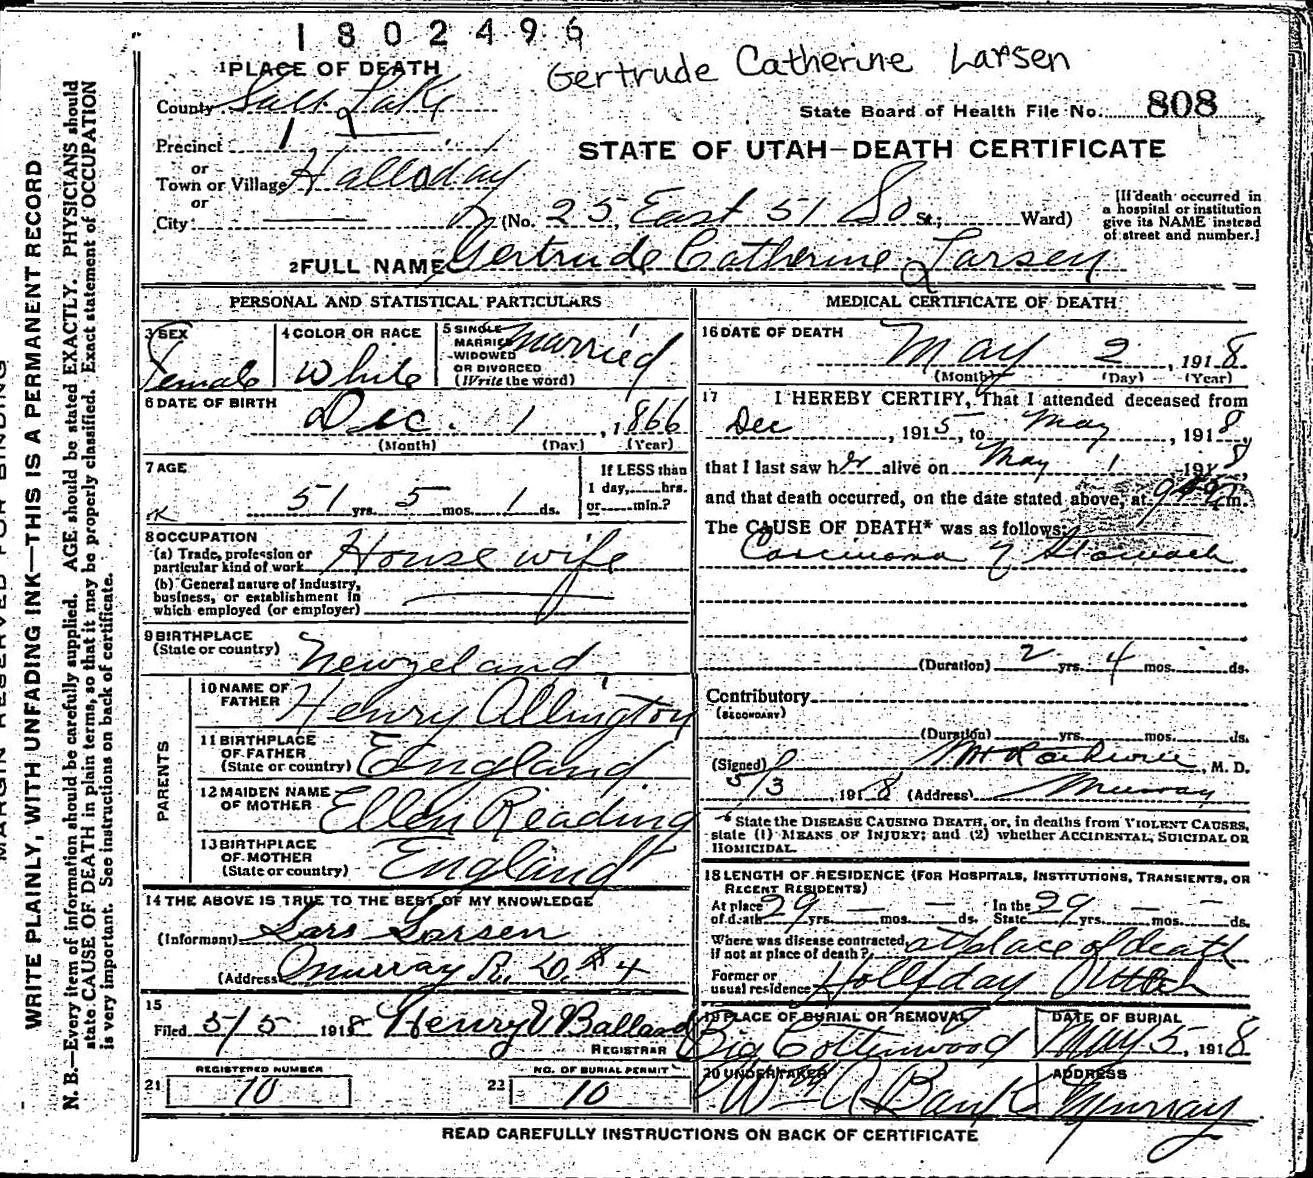 1802496
Gertrude Catherine Larsen
1 PLACE OF DEATH
County Salt Lake
State Board of Health File No. 808
Precinct 1
or
Town or Village Halloday
or
City
STATE OF UTAH—DEATH CERTIFICATE
(No. 25 East 51 So St.; Ward)
[If death occurred in
a hospital or institution
give its NAME instead
of street and number.]
2 FULL NAME Gertrude Catherine Larsen
PERSONAL AND STATISTICAL PARTICULARS
3 SEX Female
4 COLOR OR RACE White
5 SINGLE
MARRIED
WIDOWED
OR DIVORCED
(Write the word) Married
6 DATE OF BIRTH
Dec. 1, 1866
(Month) (Day) (Year)
7 AGE
51 yrs. 5 mos. 1 ds.
If LESS than
1 day, hrs.
or min.?
8 OCCUPATION
(a) Trade, profession or
particular kind of work House wife
(b) General nature of industry,
business, or establishment in
which employed (or employer)
9 BIRTHPLACE
(State or country) Newzeland
PARENTS
10 NAME OF
FATHER Henry Allington
11 BIRTHPLACE
OF FATHER
(State or country) England
12 MAIDEN NAME
OF MOTHER Ellen Reading
13 BIRTHPLACE
OF MOTHER
(State or country) England
14 THE ABOVE IS TRUE TO THE BEST OF MY KNOWLEDGE
(Informant) Lars Larsen
(Address) Murray R. D. #4
15
Filed 5/5 1918 Henry V Ballard
REGISTRAR
21 REGISTERED NUMBER 10
22 NO. OF BURIAL PERMIT 10
MEDICAL CERTIFICATE OF DEATH
16 DATE OF DEATH
May 2, 1918
(Month) (Day) (Year)
17 I HEREBY CERTIFY, That I attended deceased from
Dec, 1915, to May, 1918,
that I last saw her alive on May 1, 1918,
and that death occurred, on the date stated above, at m.
The CAUSE OF DEATH* was as follows:
Carcinoma of Stomach
(Duration) 2 yrs. 4 mos. ds.
Contributory
(SECONDARY)
(Duration) yrs. mos. ds.
(Signed), M. D.
5/3, 1918 (Address) Murray
* State the DISEASE CAUSING DEATH, or, in deaths from VIOLENT CAUSES,
state (1) MEANS OF INJURY; and (2) whether ACCIDENTAL, SUICIDAL OR
HOMICIDAL.
18 LENGTH OF RESIDENCE (FOR HOSPITALS, INSTITUTIONS, TRANSIENTS, OR
RECENT RESIDENTS)
At place
of death 29 yrs. — mos. — ds. In the
State 29 yrs. — mos. — ds.
Where was disease contracted,
if not at place of death? at place of death
Former or
usual residence Holliday Utah
19 PLACE OF BURIAL OR REMOVAL
Big Cottonwood
DATE OF BURIAL
May 5, 1918
20 UNDERTAKER
Wm A Bank
ADDRESS
Murray
READ CAREFULLY INSTRUCTIONS ON BACK OF CERTIFICATE
MARGIN RESERVED FOR BINDING
WRITE PLAINLY, WITH UNFADING INK—THIS IS A PERMANENT RECORD
N. B.—Every item of information should be carefully supplied. AGE should be stated EXACTLY. PHYSICIANS should
state CAUSE OF DEATH in plain terms, so that it may be properly classified. Exact statement of OCCUPATION
is very important. See instructions on back of certificate.